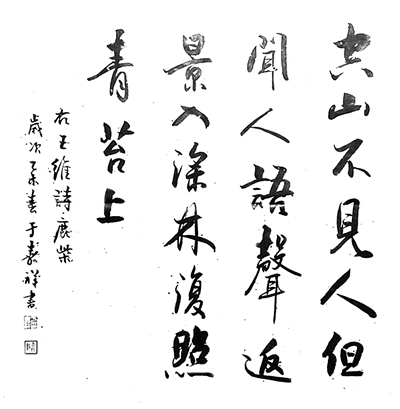 空山不見人但
聞人語聲返
景入深林復照
青苔上
右王維詩鹿柴
歲次春于祥書